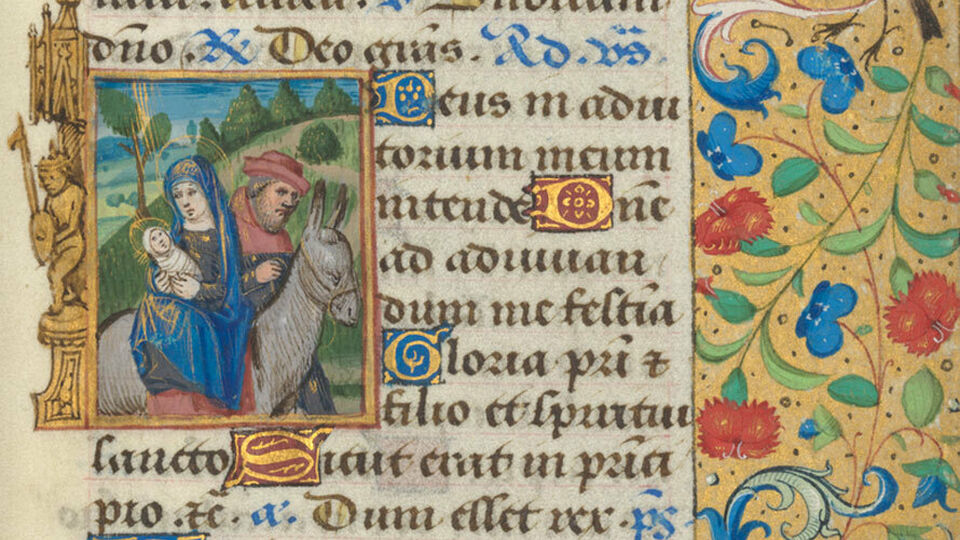 dño . ℟ Deo grãs . Ad vs̃ .
Deus in adiu
torium meum
intende Dñe
ad adiuuan
dum me festĩa
Gloria pr̃i ⁊
filio et spiritui
sancto Sicut erat in prĩci
pio . ⁊c̃ . a . Dum esset rex . ps̃